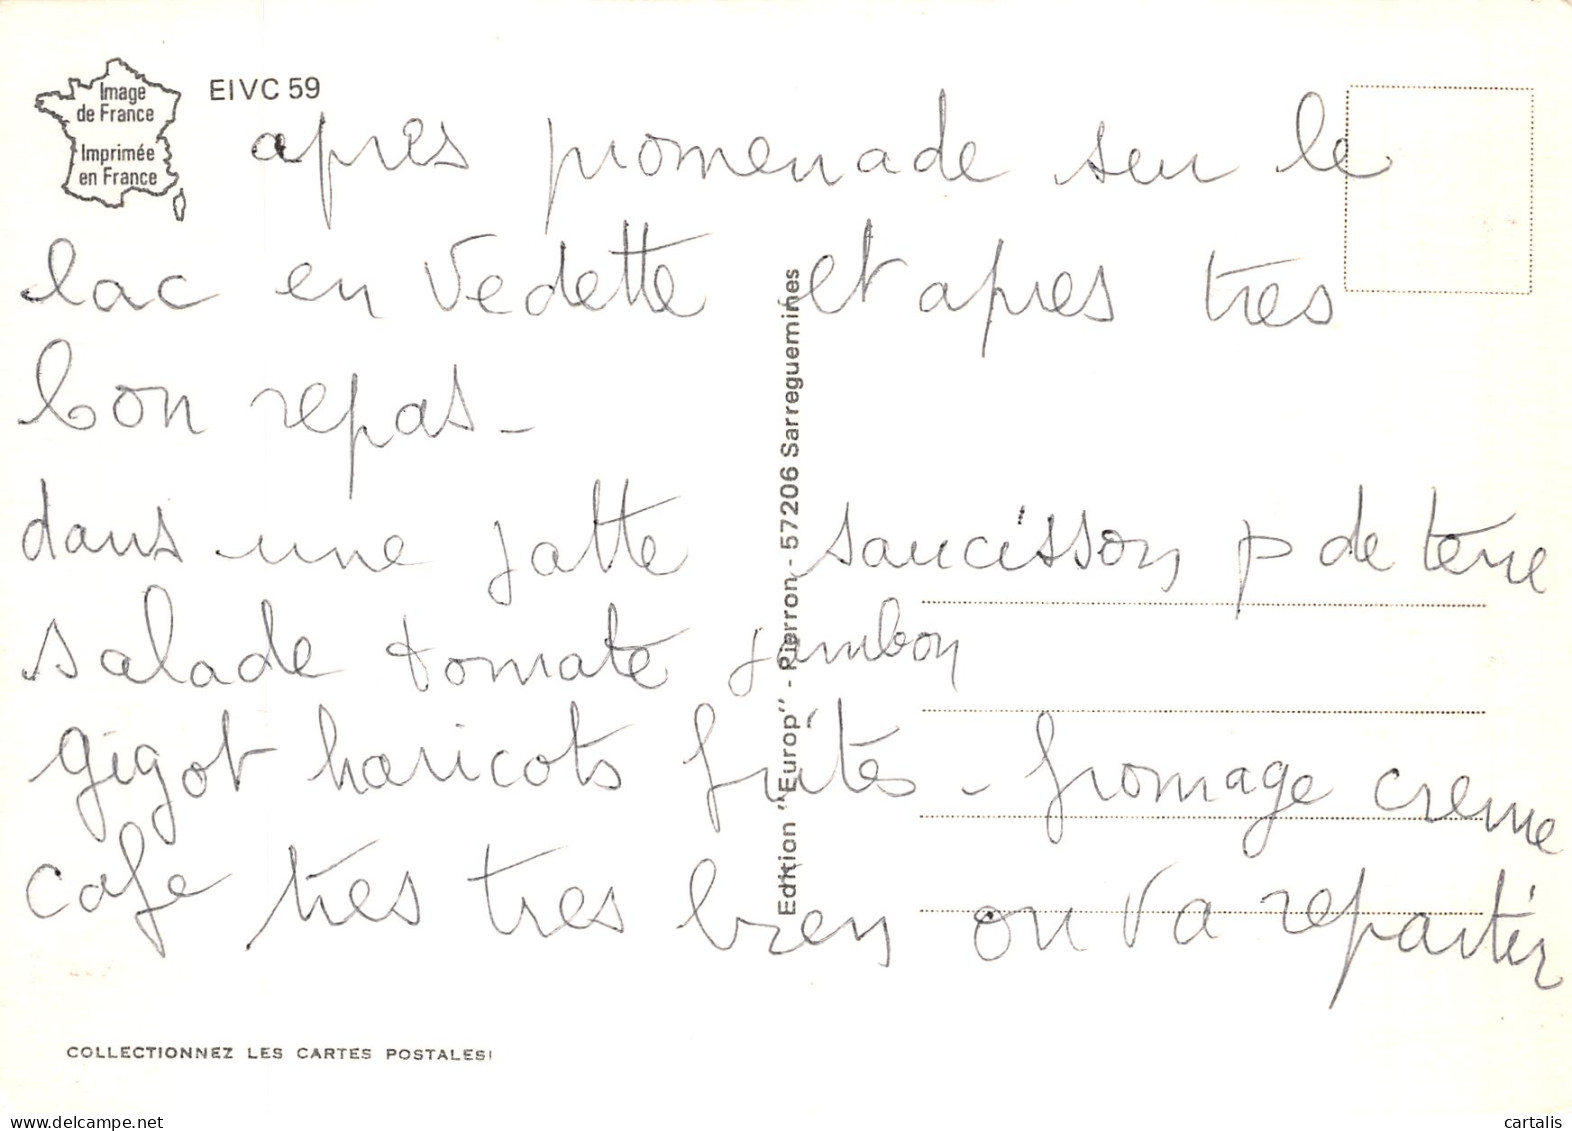 Image
de France
Imprimée
en France
EIVC 59
après promenade sur le
lac en vedette et apres tres
bon repas -
dans une jatte saucisson p de terre
salade tomate jambon
gigot haricots frites - fromage creme
cafe tres tres bien on va repartir
Edition "Europ" - Pierron - 57206 Sarreguemines
COLLECTIONNEZ LES CARTES POSTALES!
delcampe.net
cartalis